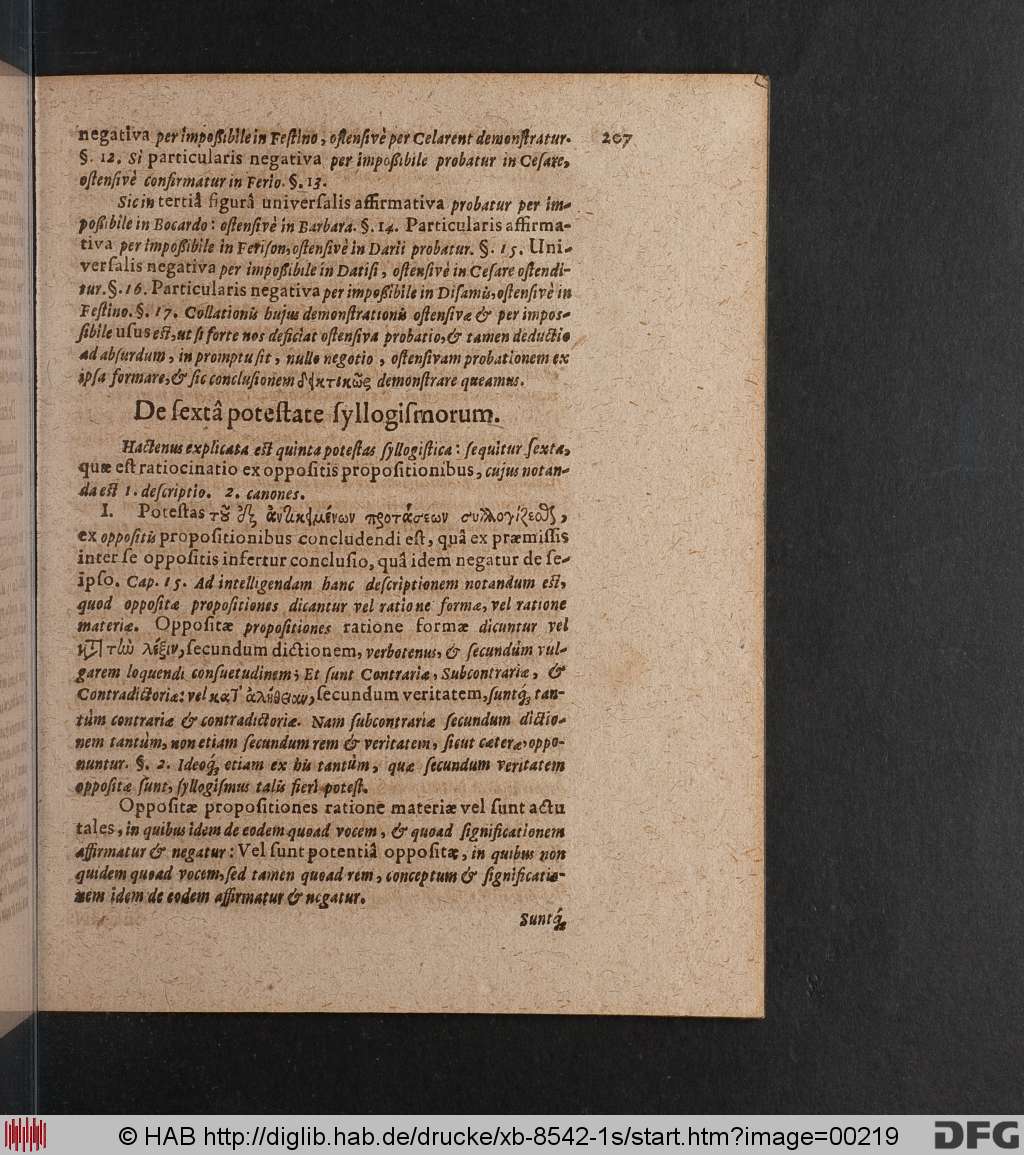 negativa per impoßibile in Festino, ostensivè per Celarent demonstratur.
207
§. 12. Si particularis negativa per impoßibile probatur in Cesare,
ostensivè confirmatur in Ferio. §. 13.
Sic in tertiâ figurâ universalis affirmativa probatur per im-
poßibile in Bocardo: ostensivè in Barbara. §. 14. Particularis affirma-
tiva per impoßibile in Ferison, ostensivè in Darii probatur. §. 15. Uni-
versalis negativa per impoßibile in Datisi, ostensivè in Cesare ostendi-
tur. §. 16. Particularis negativa per impoßibile in Disamis, ostensivè in
Festino. §. 17. Collationis hujus demonstrationis ostensivæ & per impos-
sibile usus est, ut si forte nos deficiat ostensiva probatio, & tamen deductio
ad absurdum, in promptu sit, nullo negotio, ostensivam probationem ex
ipsa formare, & sic conclusionem δεικτικῶς demonstrare queamus.
De sextâ potestate syllogismorum.
Hactenus explicata est quinta potestas syllogistica: sequitur sexta,
quæ est ratiocinatio ex oppositis propositionibus, cujus notan-
da est 1. descriptio. 2. canones.
I. Potestas τοῦ ἐξ ἀντικειμένων προτάσεων συλλογίζεσθαι,
ex oppositis propositionibus concludendi est, quâ ex præmissis
inter se oppositis infertur conclusio, quâ idem negatur de se-
ipso. Cap. 15. Ad intelligendam hanc descriptionem notandum est,
quod oppositæ propositiones dicantur vel ratione formæ, vel ratione
materiæ. Oppositæ propositiones ratione formæ dicuntur vel
κατὰ τὴν λέξιν, secundum dictionem, verbotenus, & secundùm vul-
garem loquendi consuetudinem; Et sunt Contrariæ, Subcontrariæ, &
Contradictoriæ: vel κατ' ἀλήθειαν, secundum veritatem, suntq́; tan-
tùm contrariæ & contradictoriæ. Nam subcontrariæ secundum dictio-
nem tantùm, non etiam secundum rem & veritatem, sicut cæteræ, oppo-
nuntur. §. 2. Ideoq́; etiam ex his tantùm, quæ secundum veritatem
oppositæ sunt, syllogismus talis fieri potest.
Oppositæ propositiones ratione materiæ vel sunt actu
tales, in quibus idem de eodem quoad vocem, & quoad significationem
affirmatur & negatur: Vel sunt potentiâ oppositæ, in quibus non
quidem quoad vocem, sed tamen quoad rem, conceptum & significatio-
nem idem de eodem affirmatur & negatur.
Suntq́;
© HAB http://diglib.hab.de/drucke/xb-8542-1s/start.htm?image=00219
DFG